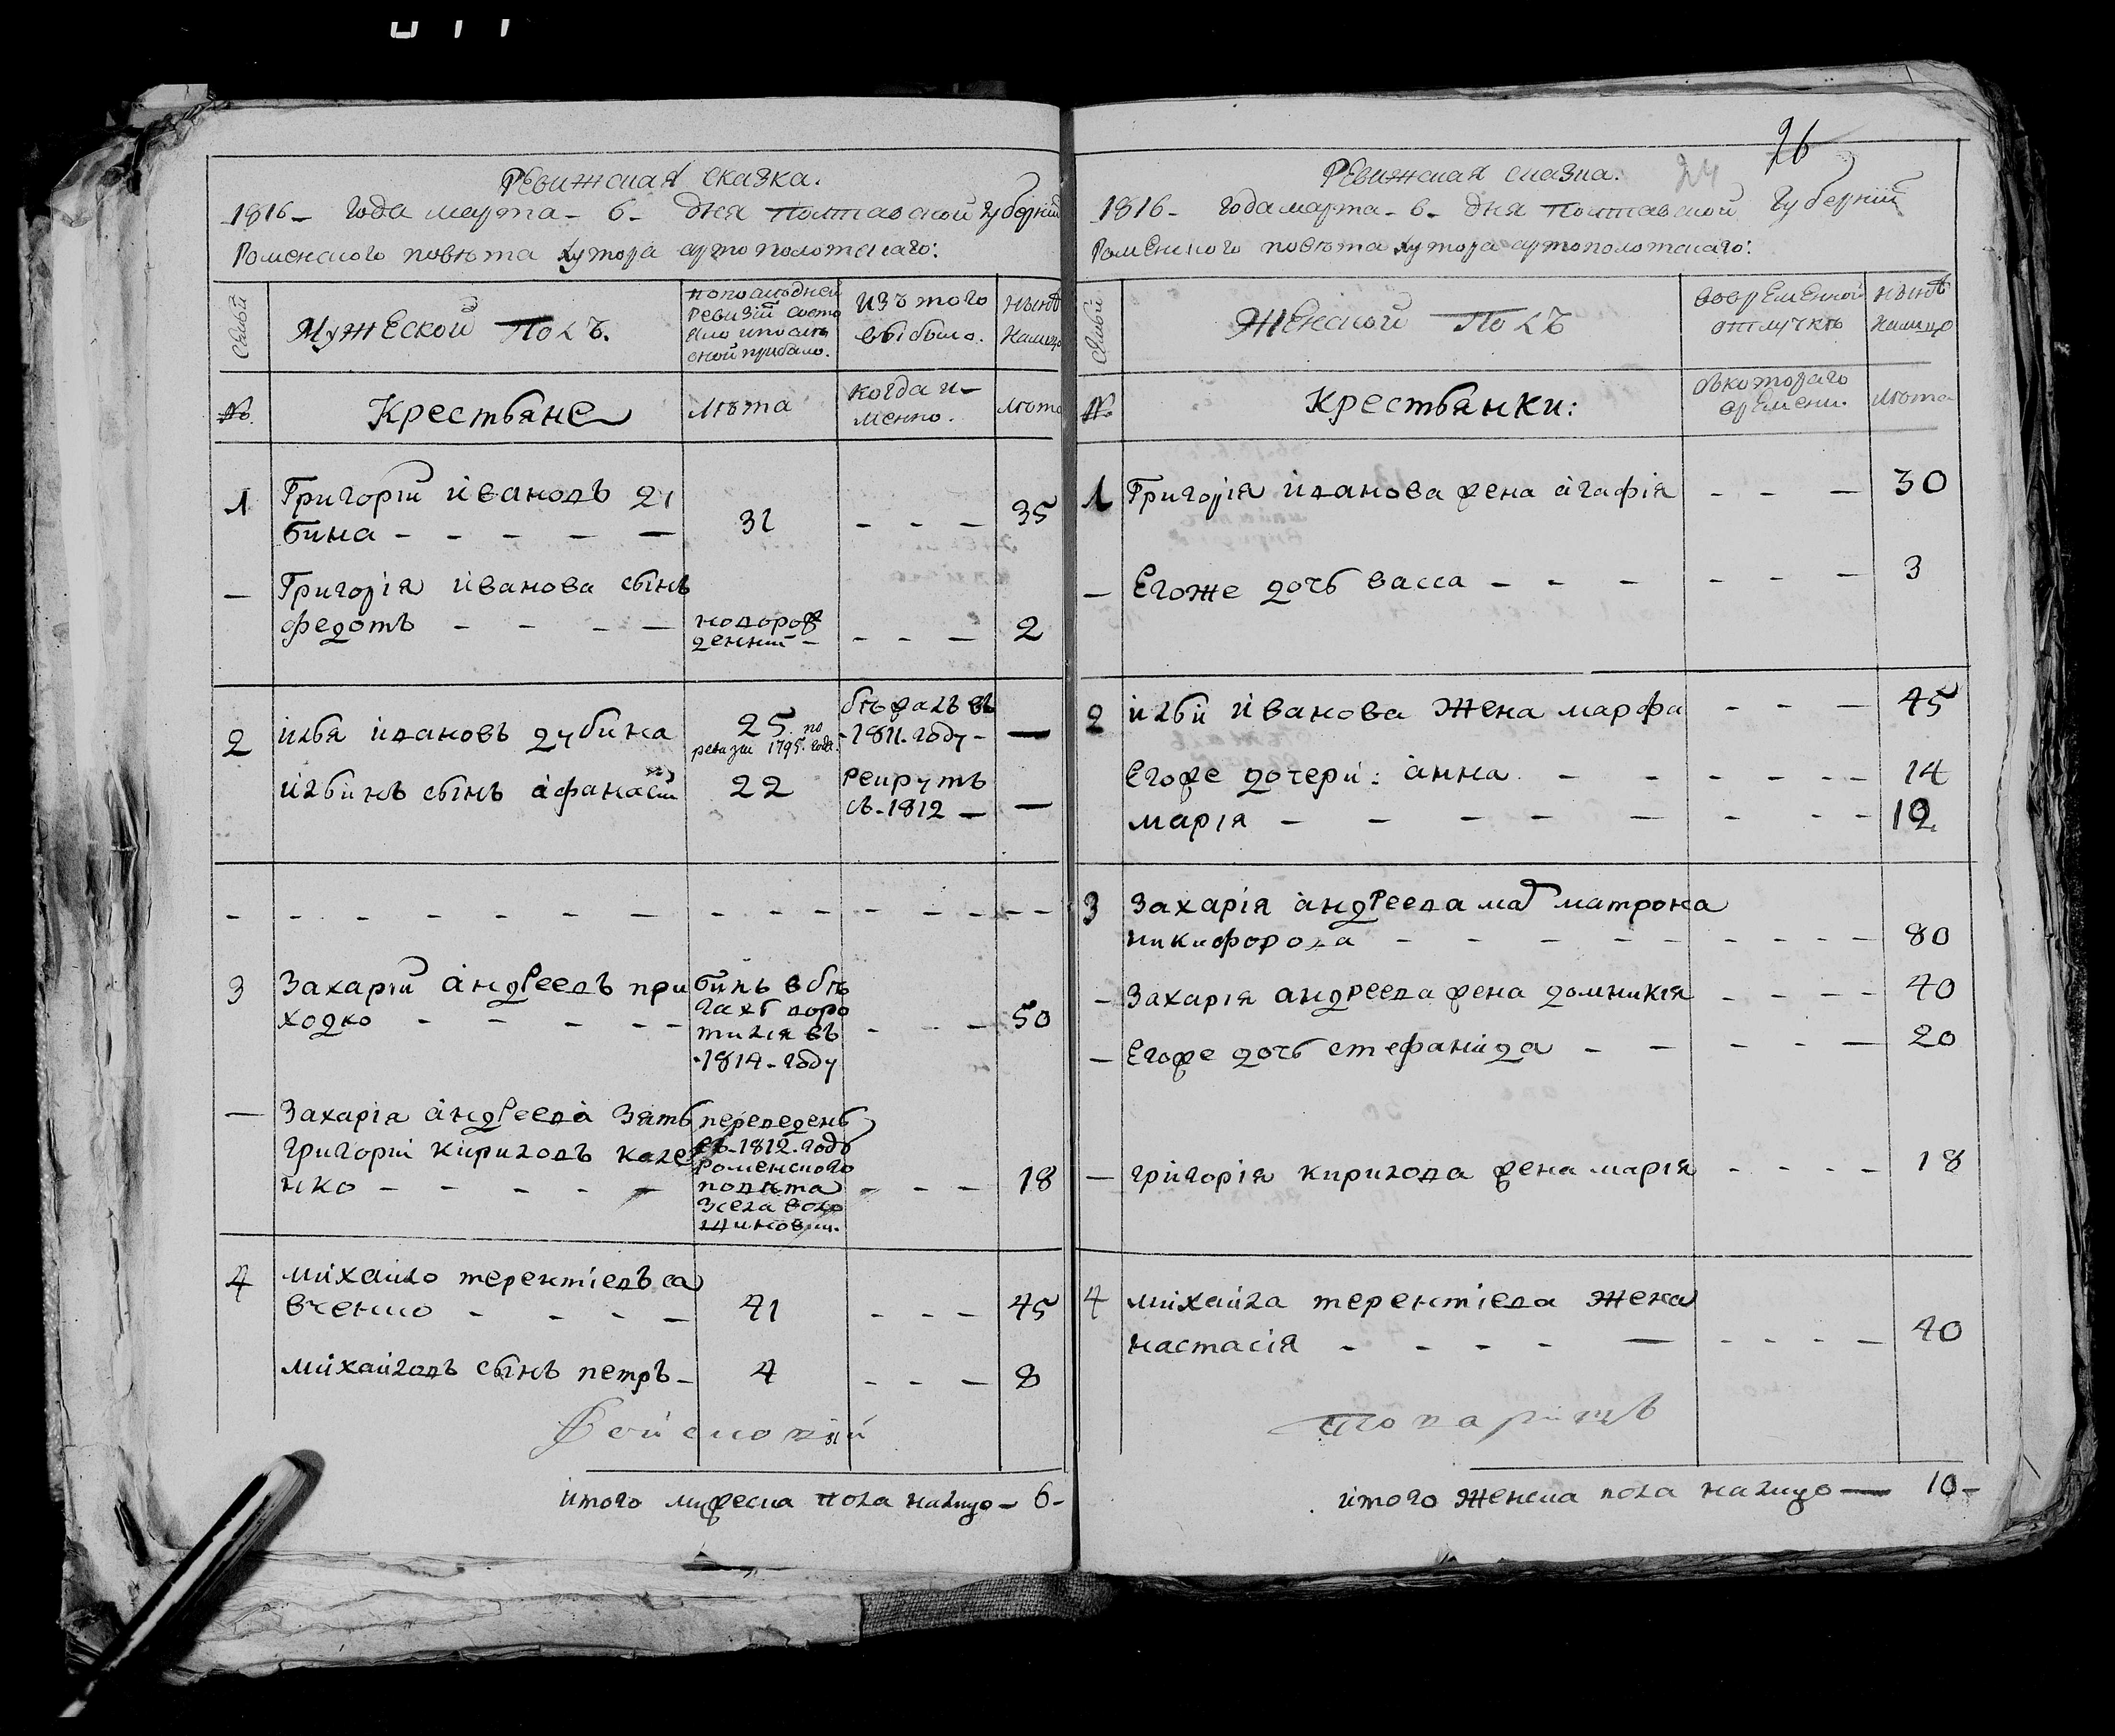 Ревижская сказка.
1816- года марта- 6- дня Полтавской губерніи
Роменского повѣта хутора артополотскаго:
Семьи
Мужеской Полъ.
По последней
ревизіи состо
яло и после
оной прибыло.
изъ того
выбыло.
нынѣ
налицо
№.
Крестьяне
лѣта
когда и-
менно.
лѣта
1
Григорій ивановъ ду
бина - - - - -
31
- - -
35
- Григорія иванова сынъ
федотъ - - - -
новорож
денний -
- - -
2
2
илья ивановъ дубина
25. по
ревизіи 1795. года.
бѣжалъ въ
-1811. году -
-
ильинъ сынъ афанасій
22
рекрутъ
съ-1812 -
-
3
Захарій андреевъ при
ходко - - - - -
билъ вбѣ
гахъ воро
тился въ
1814. году
- - -
50
- Захарія андреева зять
григорій кириловъ коле
нко - - - - -
переведенъ
съ-1812. году
роменского
повѣта
зсела
- - -
18
4
михайло терентіевъ са
вченко - - - -
41
- - -
45
михайловъ сынъ петръ -
4
- - -
8
итого мужеска пола налицо - 6-
26
24
Ревижская сказка.
1816- года марта- 6- дня Полтавской Губерніи
Роменского повѣта хутора артополотскаго:
Семьи
Женской Полъ
вовременной
отлучкѣ
нынѣ
налицо
№.
Крестьянки:
съкотораго
времени.
лѣта
1
Григорія иванова жена агафія - - -
30
- Егоже дочь васса - - - - - -
3
2
ильи иванова Жена марфа - - -
45
Егоже дочери: анна - - - - - -
14
марія - - - - - - - -
12
3
Захарія андреева мать матрона
никифорова - - - - - - - -
80
- Захарія андреева жена домникія - - - -
40
- Егоже дочь стефанида - - - - -
20
- григорія кирилова жена марія - - - -
18
4
михайла терентіева жена
настасія - - - - - - - - -
40
итого женска пола налицо — 10-